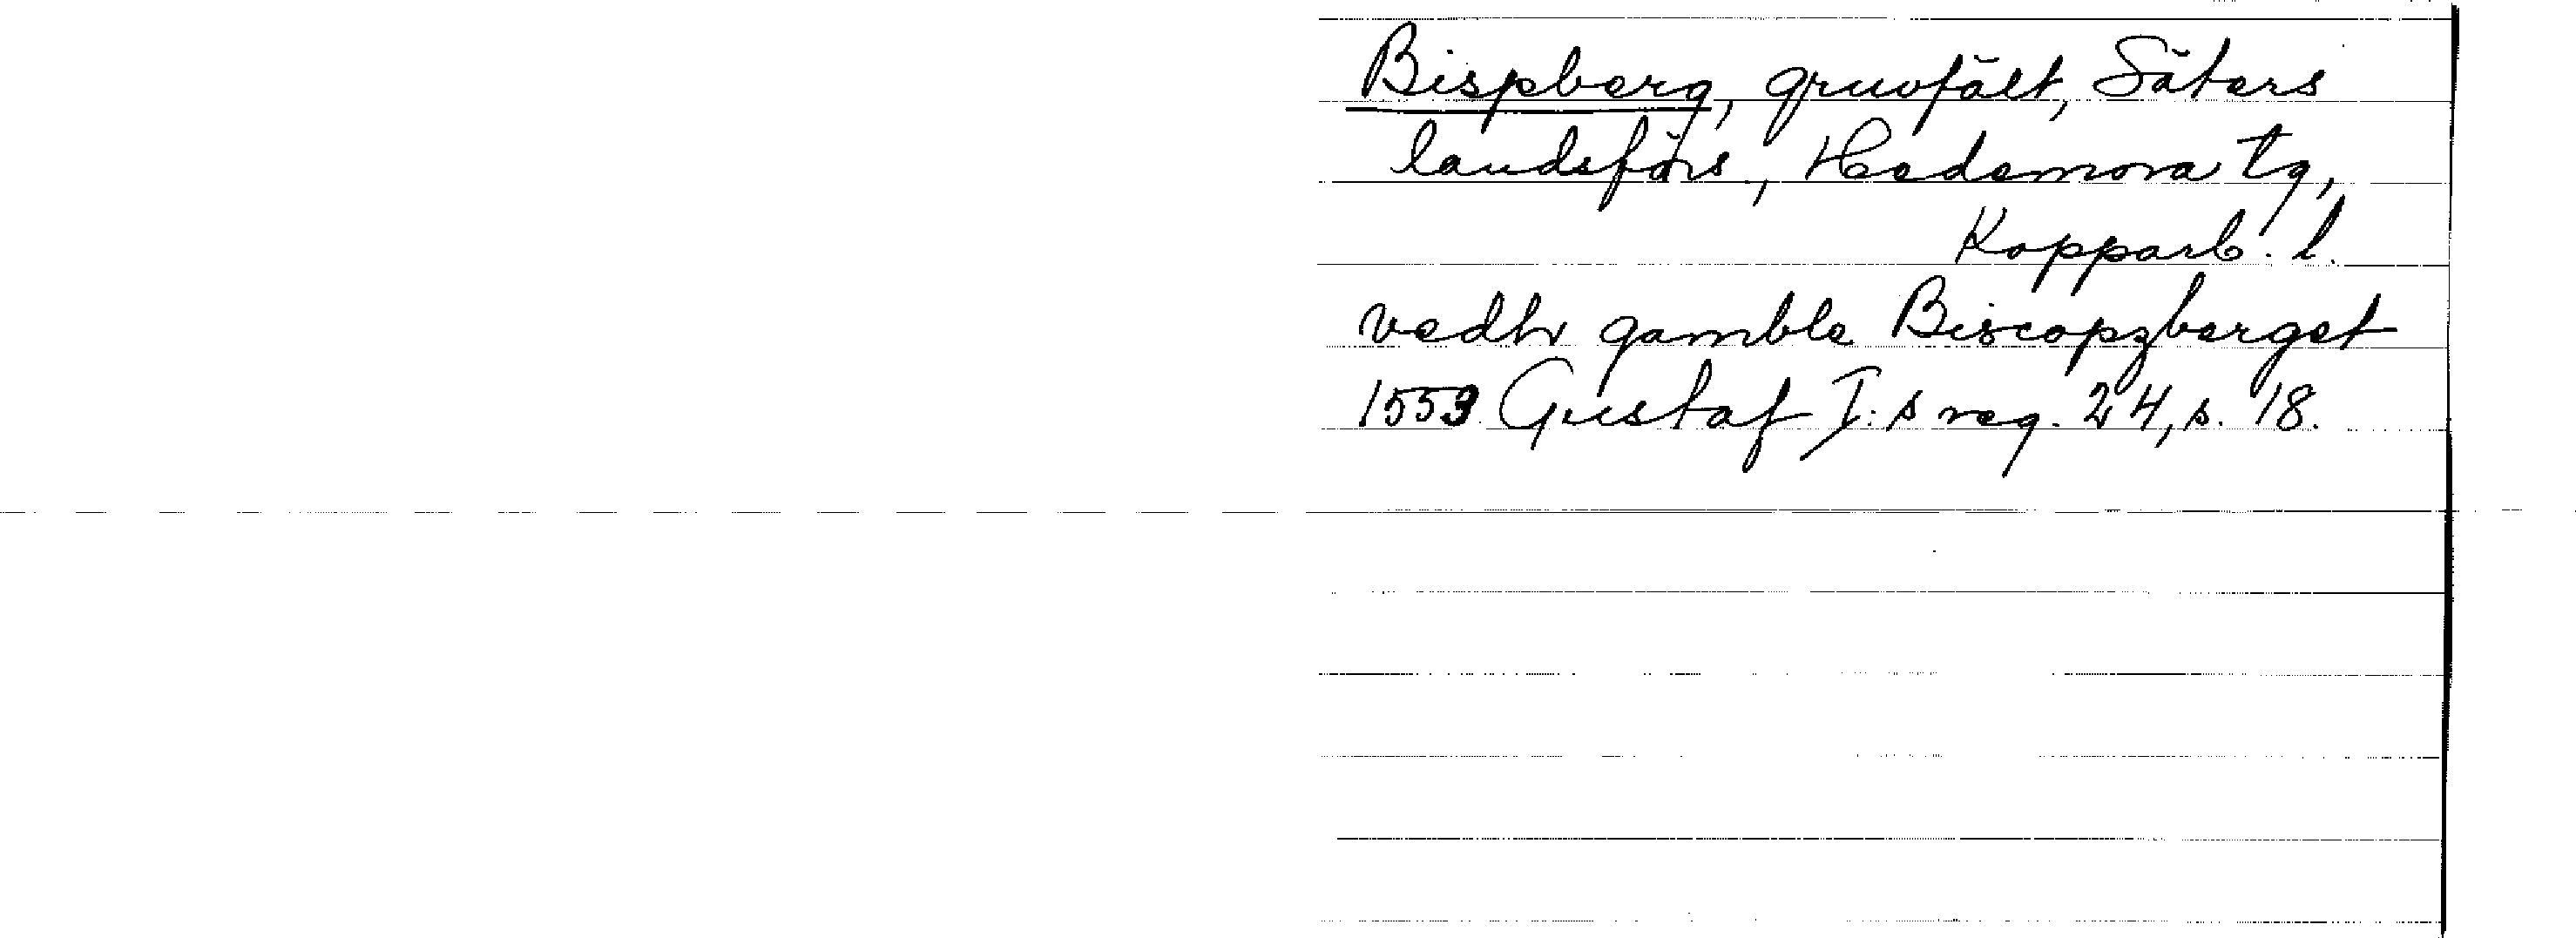 Bispberg, gruvfält, Säters
landsförs, Hedemora tg,
Kopparb. l.
vedh gamble Biscopzberget
1553 Gustaf I:s reg. 24, s. 18.